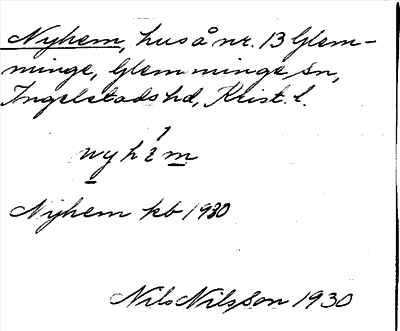 Nyhem, hus å nr. 13 Glem-
minge, Glemminge sn,
Ingelstads hd, Krist. l.
nyhem
Nyhem kb 1930
Nils Nilsson 1930